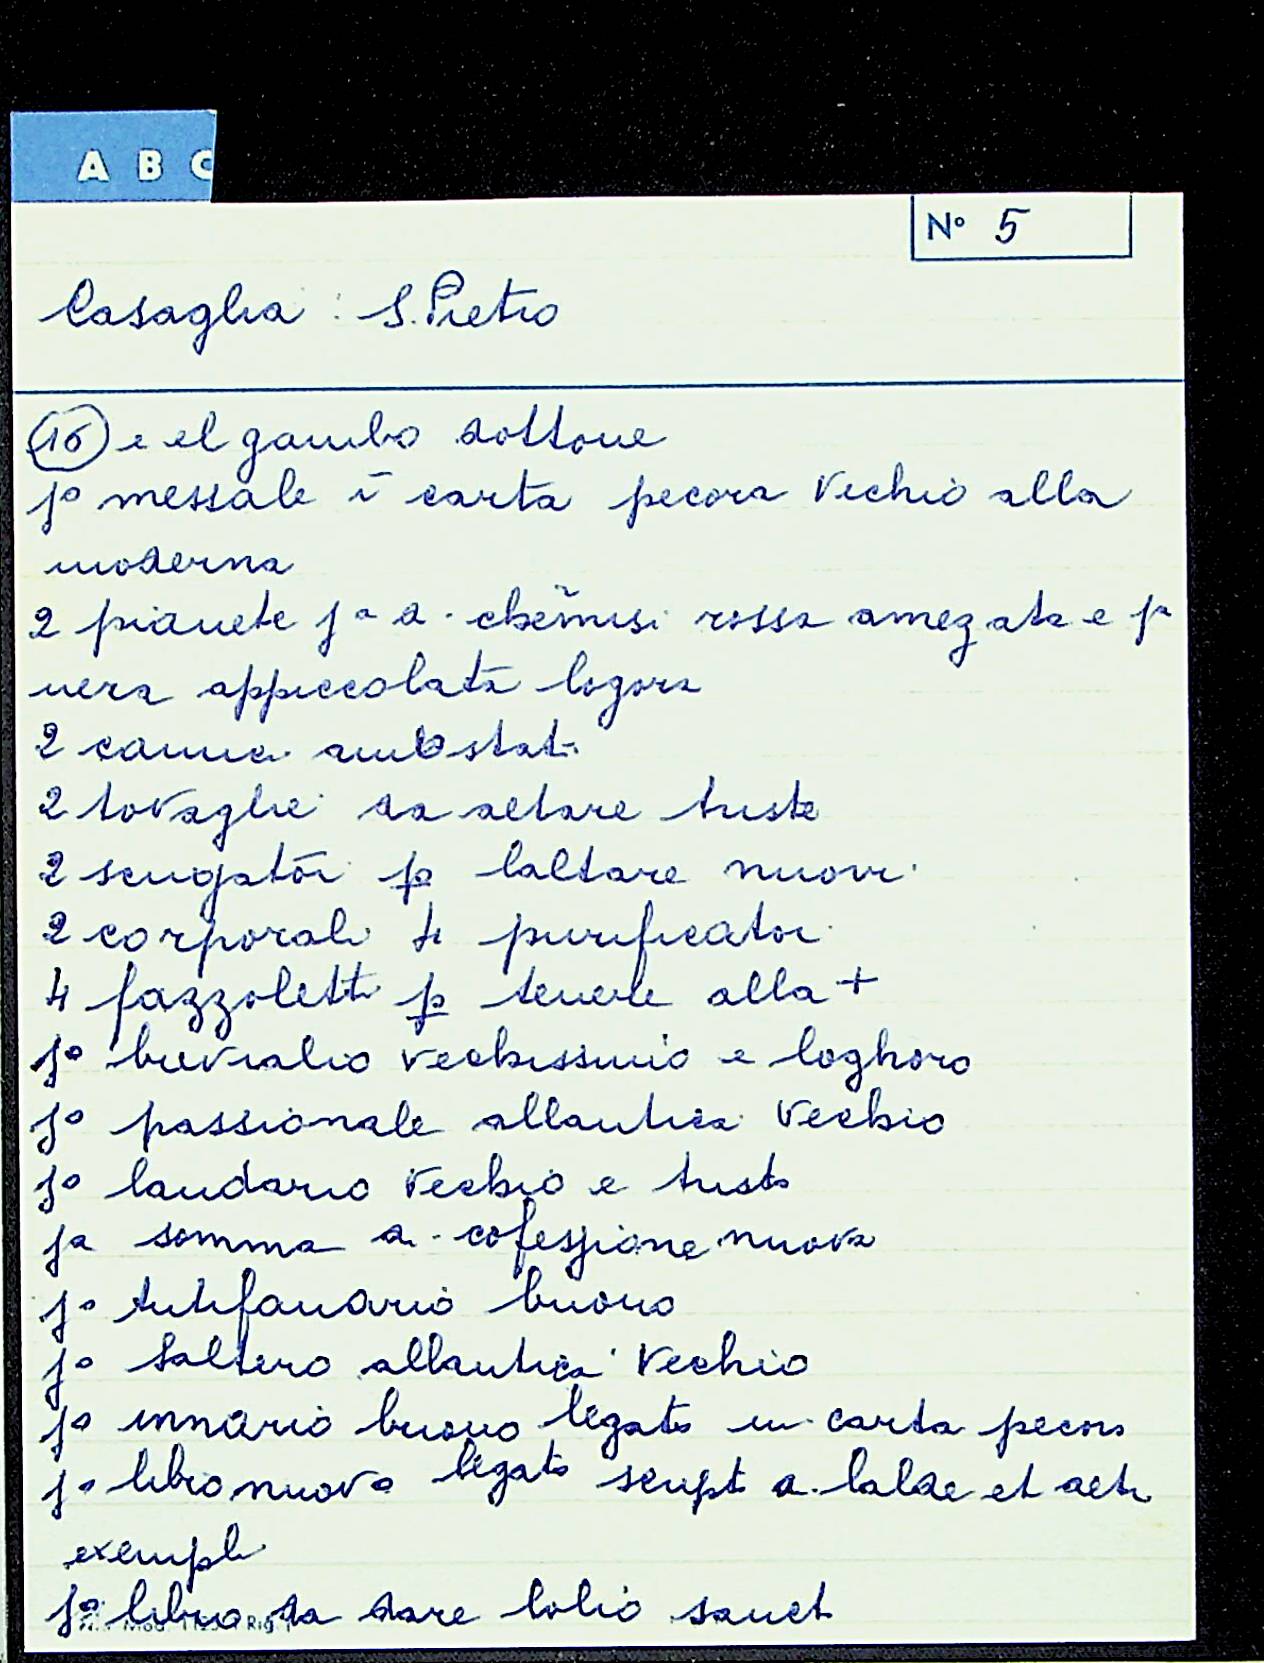 A B C
N° 5
Casaglia : S. Pietro
(16) e el gambo dottone
j° messale ī carta pecora vechio alla
moderna
2 pianete jª d. chēmisi rossa amezata e jª
nera appiccolata logora
2 camici
2 tovaglie da altare triste
2 sciugatōi p laltare nuovi
2 corporali 4 purificatoi
4 fazzoletti p tenere alla +
j° brevialio vechissimo e loghoro
j° passionale allantica vechio
j° laudario vechio e tristo
jª somma d. cofessione nuova
j° antifanario buono
j° Saltero allantica vechio
j° innario buono legato in carta pecora
j° libro nuovo legato script d. lalde et altri
exempli
j° libro da dare lolio sanct